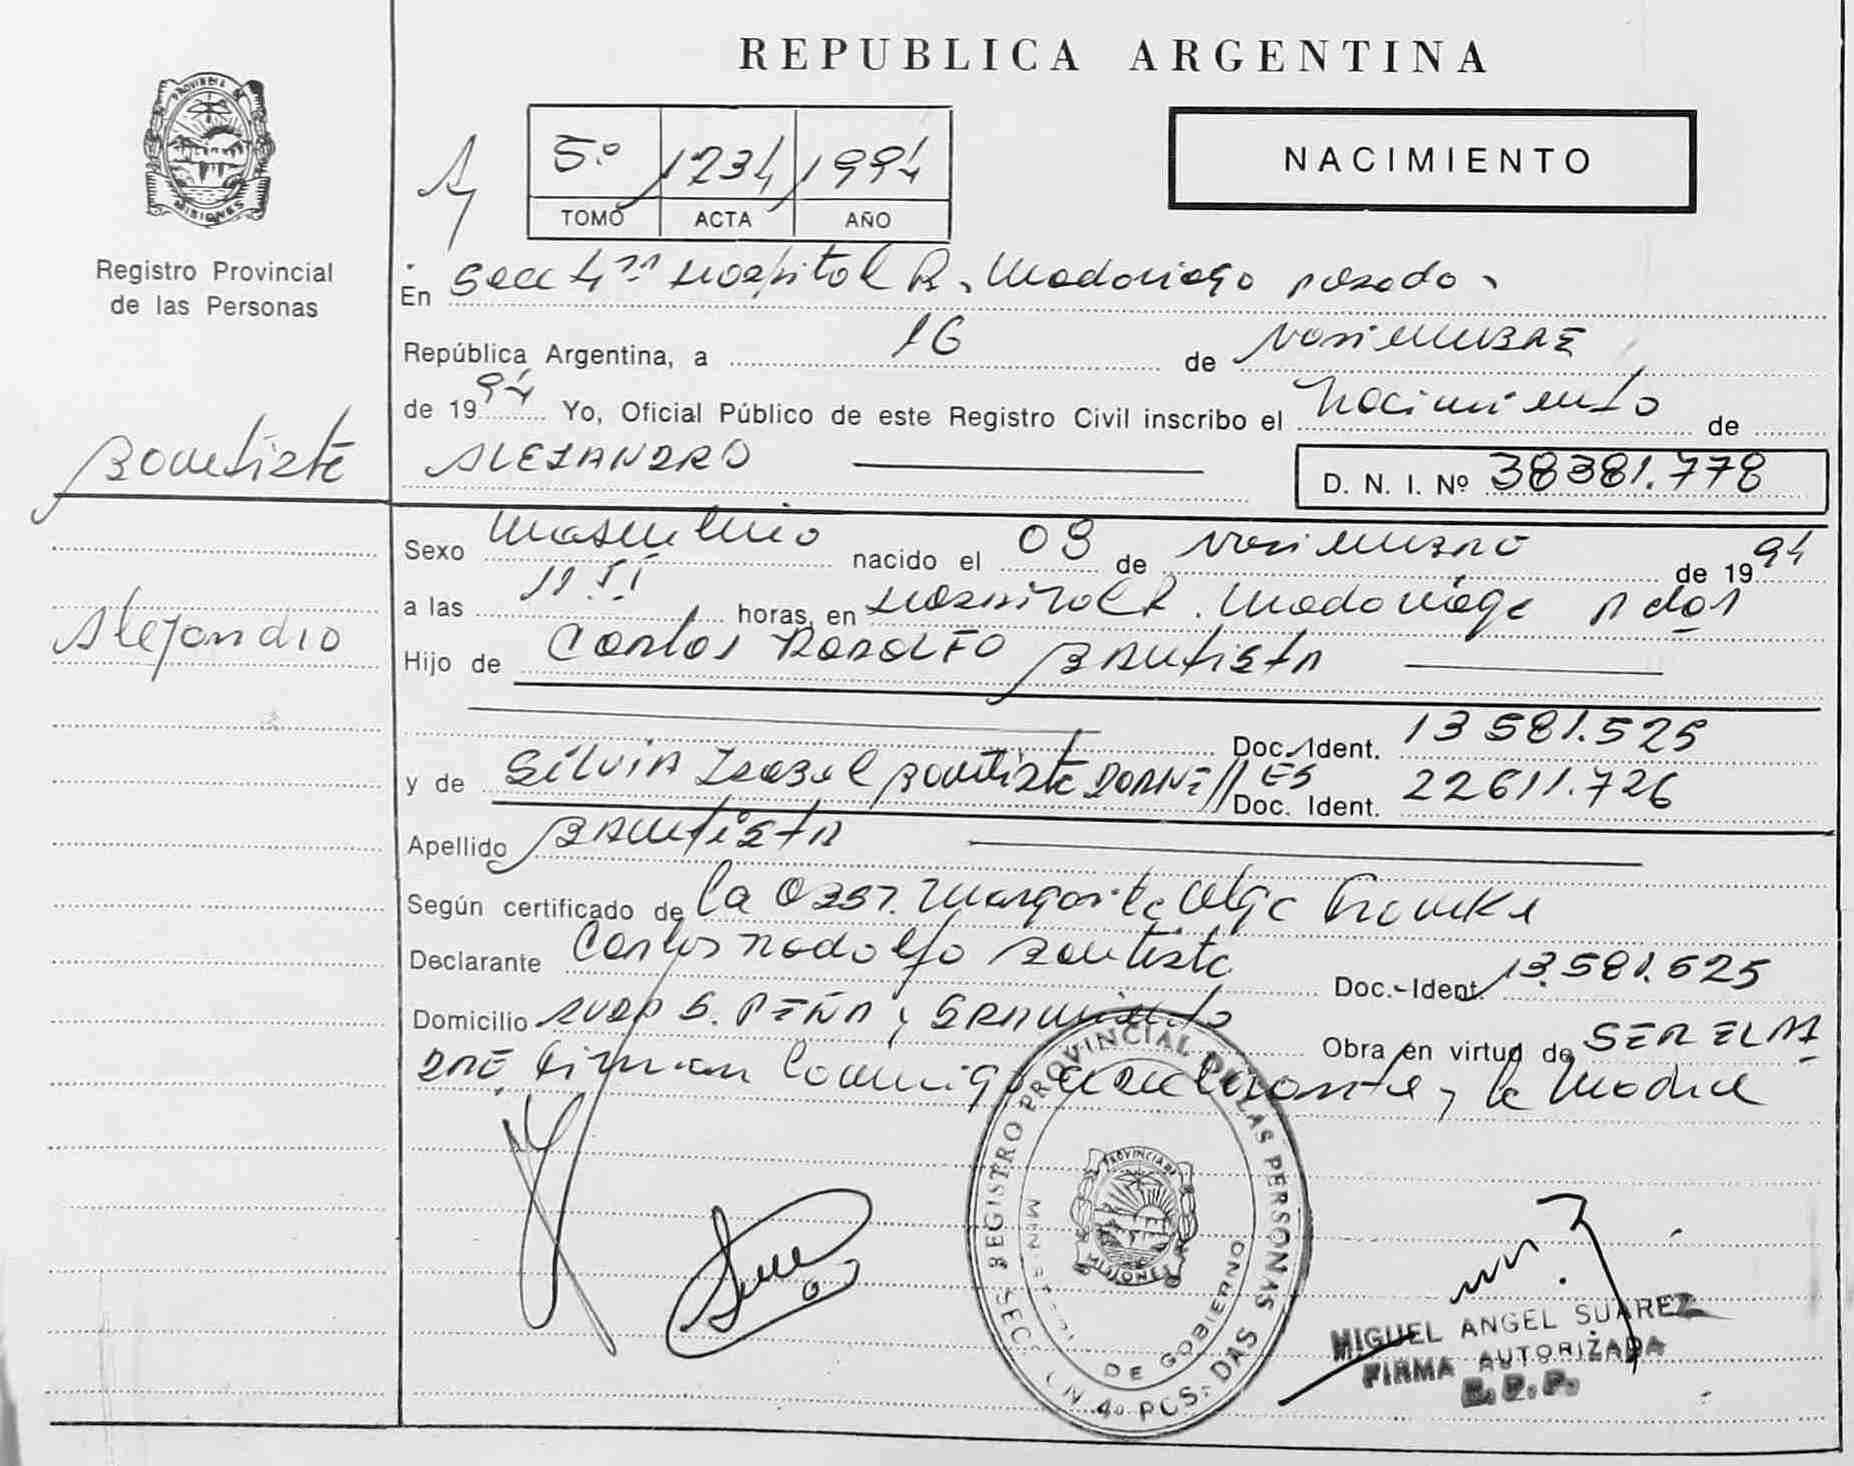 REPUBLICA ARGENTINA
PROVINCIA DE
MISIONES
Registro Provincial
de las Personas
5º 1234 1994
TOMO ACTA AÑO
NACIMIENTO
En Secc 4ta Hospital R. Madariaga posadas
República Argentina, a 16 de Noviembre
de 1994 Yo, Oficial Público de este Registro Civil inscribo el Nacimiento de
Bautista
ALEJANDRO D. N. I. Nº 38381.778
Sexo Masculino nacido el 08 de Noviembre de 1994
a las horas, en Hospital R. Madariaga pdas
Alejandro
Hijo de Carlos RODOLFO BAUTISTA
Doc. Ident. 13581.525
y de SILVIA Isabel Bautista DORNELLES Doc. Ident. 22611.726
Apellido BAUTISTA
Según certificado de la Obst. Margarita Olga
Declarante Carlos Rodolfo Bautista Doc. Ident. 13.581.525
Domicilio S. PEÑA y SARMIENTO Obra en virtud de SER EL PA
DRE firman conmigo y la Madre
REGISTRO PROVINCIAL DE LAS PERSONAS
MINISTERIO DE GOBIERNO
SECCION 4º PCS:DAS
PROVINCIA DE
MISIONES
MIGUEL ANGEL SUAREZ
FIRMA AUTORIZADA
R. P. P.